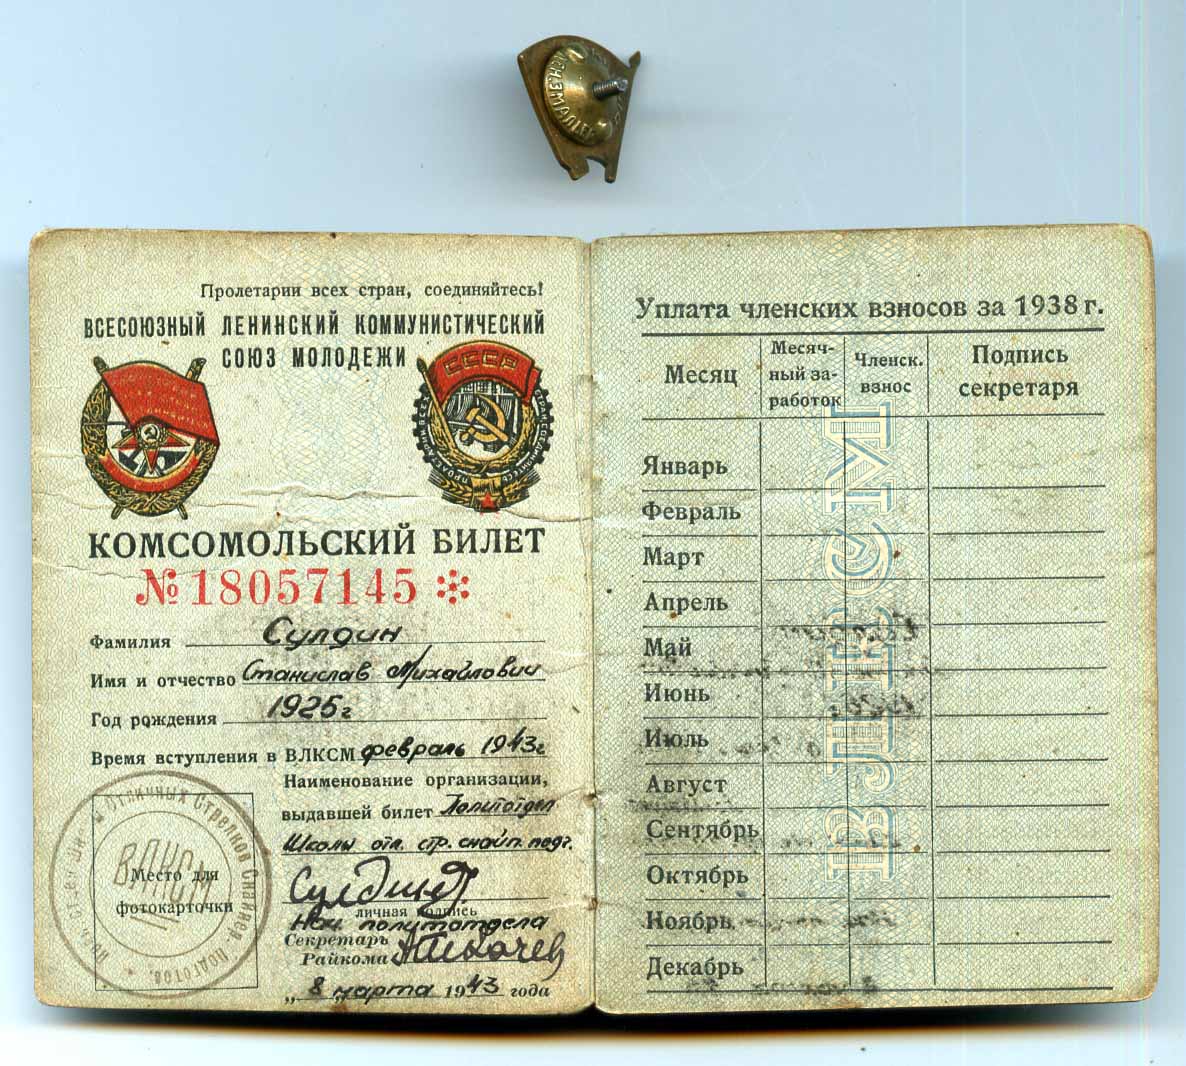 Пролетарии всех стран, соединяйтесь!
ВСЕСОЮЗНЫЙ ЛЕНИНСКИЙ КОММУНИСТИЧЕСКИЙ
СОЮЗ МОЛОДЕЖИ
СССР
КОМСОМОЛЬСКИЙ БИЛЕТ
№ 18057145
Фамилия Сулдин
Имя и отчество Станислав Михайлович
Год рождения 1925 г
Время вступления в ВЛКСМ февраль 1943 г
Наименование организации,
выдавшей билет Политотдел
Школы отл. стр. снайп. подг.
Место для
фотокарточки
ВЛКСМ
Отличных Стрелков Снайпер. Подготов.
Сулдин
личная подпись
Нач. политотдела
Секретарь
Райкома
„ 8 " марта 1943 года
Уплата членских взносов за 1938 г.
Месяц
Месяч-
ный за-
работок
Членск.
взнос
Подпись
секретаря
Январь
Февраль
Март
Апрель
Май
Июнь
Июль
Август
Сентябрь
Октябрь
Ноябрь
Декабрь
ВЛКСМ